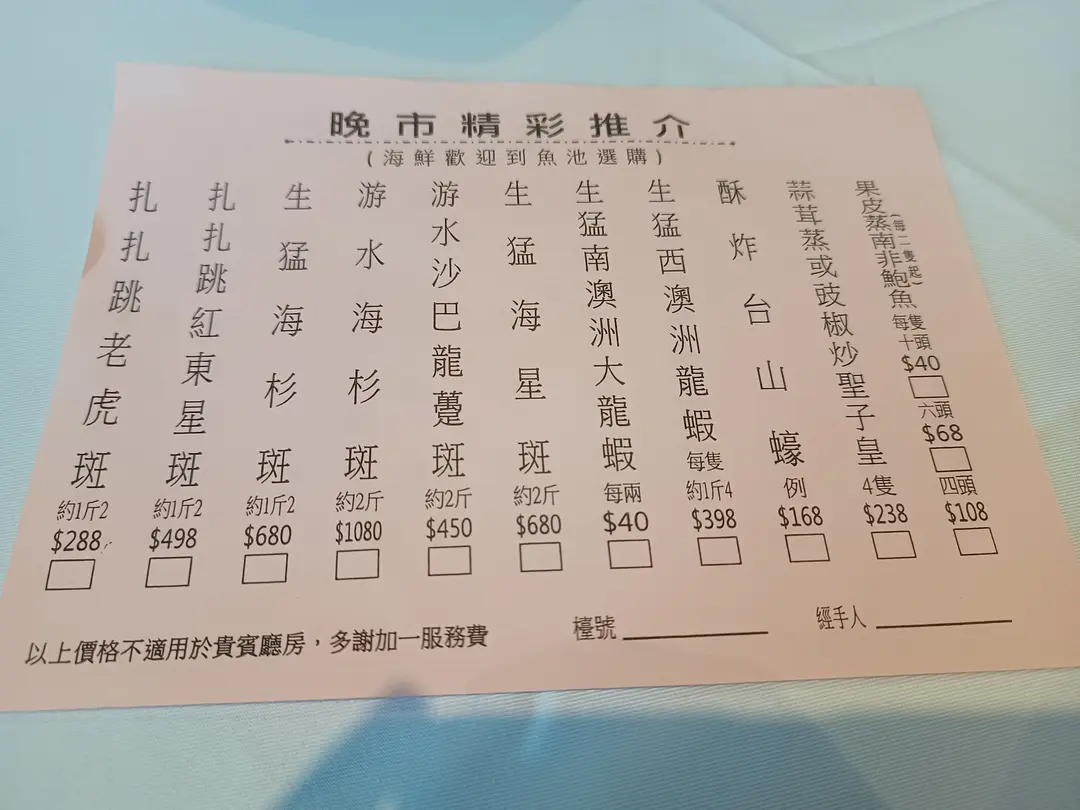 晚市精彩推介
(海鮮歡迎到魚池選購)
果皮蒸南非鮑魚
(每二隻起)
每隻
十頭
$40
六頭
$68
四頭
$108
蒜茸蒸或豉椒炒聖子皇
4隻
$238
酥炸台山蠔
例
$168
生猛西澳洲龍蝦
每隻
約1斤4
$398
生猛南澳洲大龍蝦
每兩
$40
生猛海星斑
約2斤
$680
游水沙巴龍躉斑
約2斤
$450
游水海杉斑
約2斤
$1080
生猛海杉斑
約1斤2
$680
扎扎跳紅東星斑
約1斤2
$498
扎扎跳老虎斑
約1斤2
$288
以上價格不適用於貴賓廳房，多謝加一服務費
檯號
經手人